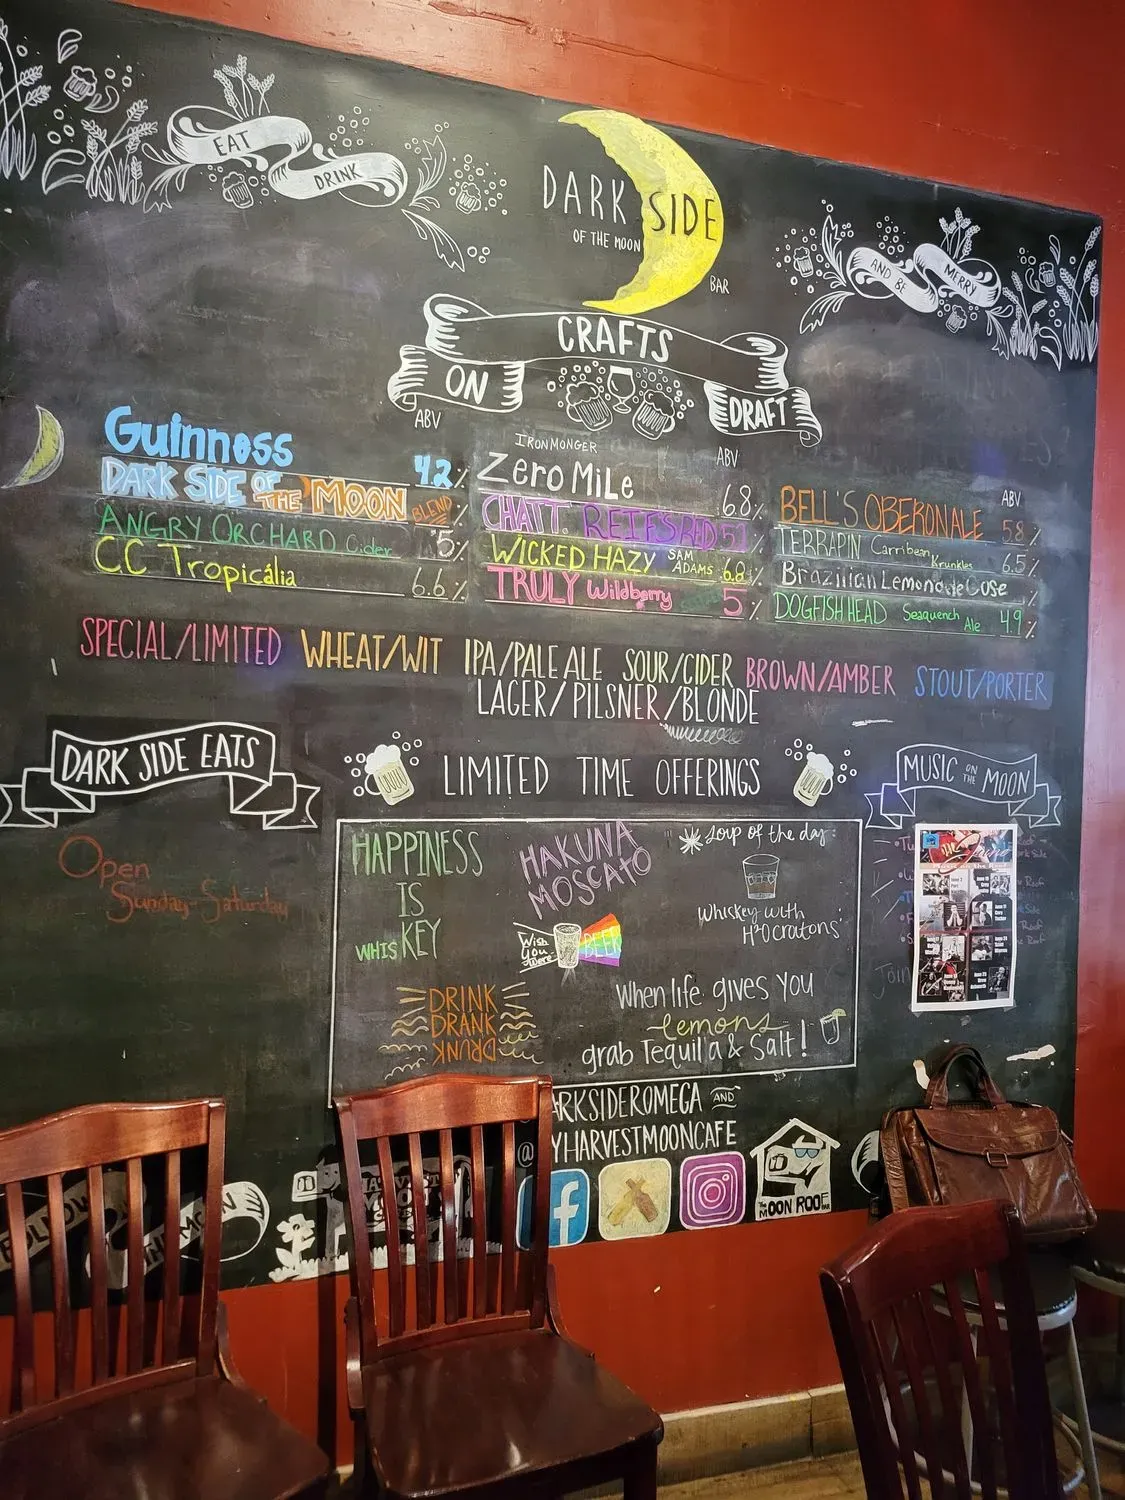 EAT
DRINK
AND BE
MERRY
DARK SIDE
OF THE MOON
BAR
CRAFTS
ON
DRAFT
ABV
Guinness 4.2%
DARK SIDE OF THE MOON BLEND %
ANGRY ORCHARD Cider 5%
CC Tropicália 6.6%
IRONMONGER
ABV
Zero Mile 6.8%
CHATT. REIFSRED 5.1
WICKED HAZY SAM ADAMS 6.8%
TRULY Wildberry 5%
ABV
BELL'S OBERONALE 5.8%
TERRAPIN Carribean Krunkles 6.5%
Brazilian Lemonade Gose %
DOGFISH HEAD Seaquench Ale 4.9%
SPECIAL/LIMITED WHEAT/WIT IPA/PALE ALE SOUR/CIDER BROWN/AMBER STOUT/PORTER
LAGER/PILSNER/BLONDE
DARK SIDE EATS
Open
Sunday-Saturday
LIMITED TIME OFFERINGS
HAPPINESS
IS
WHISKEY
HAKUNA
MOSCATO
Soup of the day:
Whiskey with
H²O cratons
Wish
You
Were
BEER
DRINK
DRANK
DRUNK
When life gives you
lemons
grab Tequila & Salt!
MUSIC ON THE MOON
ARKSIDEROMEGA AND
@ YHARVESTMOONCAFE
f
THE MOON ROOF BAR
FOLLOW
THE MOON